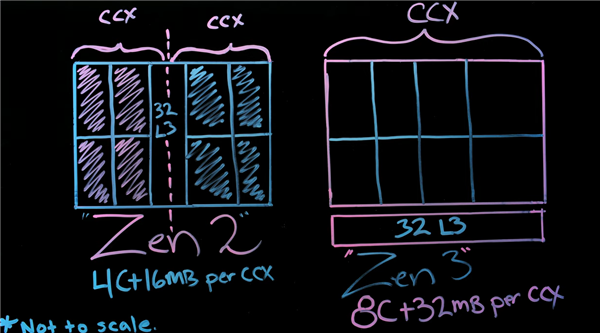 CCX
CCX
CCX
32
L3
32 L3
"Zen 2"
"Zen 3"
4C+16MB per CCX
8C+32MB per CCX
*Not to scale.